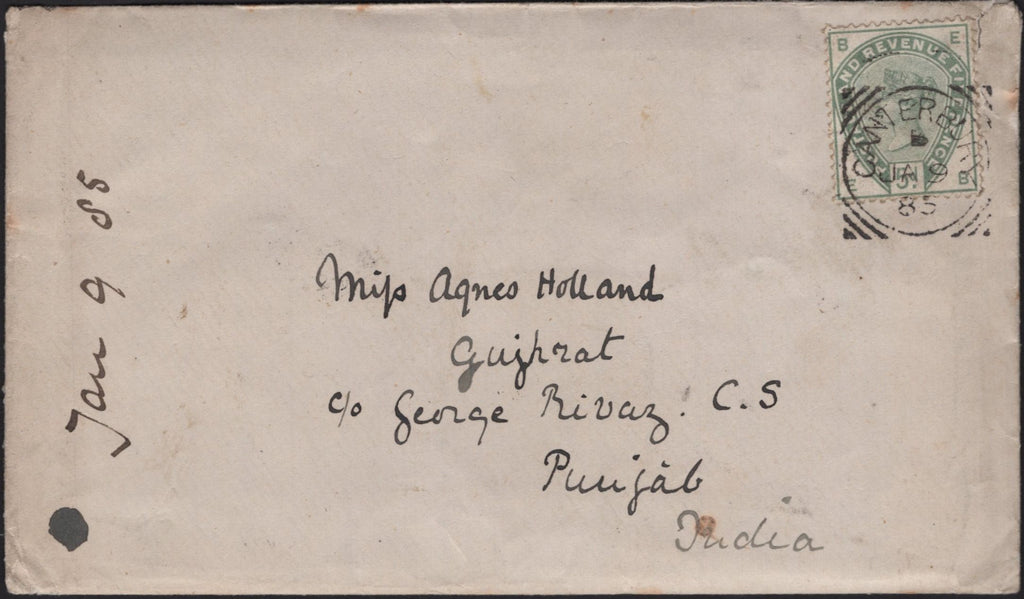 B E
ND REVENUE FIVEPENCE
5D.
B
CANTERBU
JA 9
85
Jan 9 85
Miss Agnes Holland
Gujhrat
c/o George Rivaz. C.S
Punjâb
India